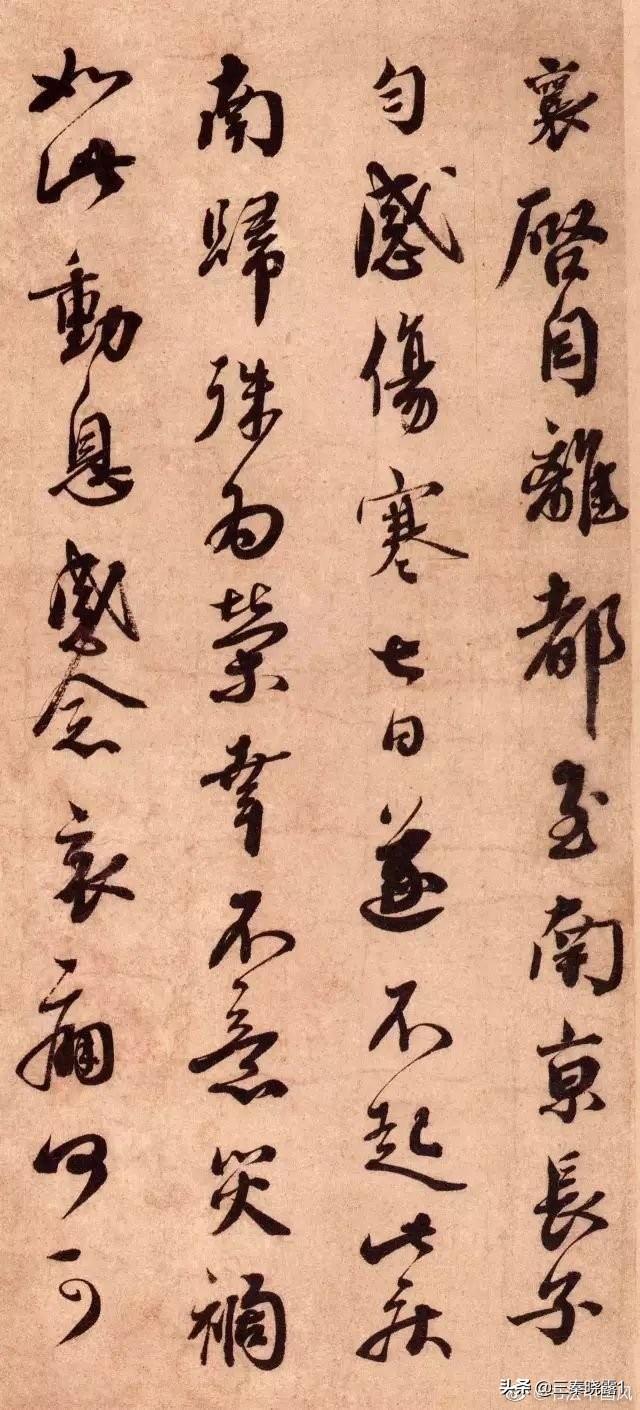 襄啓自離都至南京長子
勻感傷寒七日遂不起此疾
南歸殊為榮幸不意災禍
如此動息感念哀痛何可
头条 @三秦晓露1